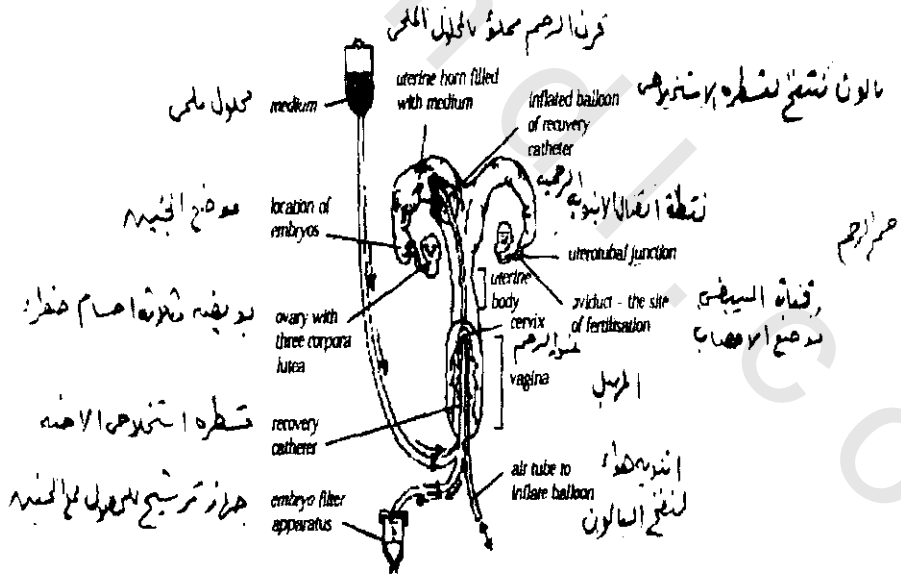 قرن الرحم مملوء بالمحلول الملحى
uterine horn filled
with medium
inflated balloon
of recovery
catheter
بالون تنتفخ لقسطره الاستخلاص
medium
محلول ملحى
location of
embryos
موضع الجنين
الرحميه
نقطة اتصال الانبوبه
uterotubal junction
جسم الرحم
uterine
body
oviduct - the site
of fertilisation
قناة المبيض
موضع الاخصاب
ovary with
three corpora
lutea
بويضه ثلاثة اجسام صفراء
cervix
عنق الرحم
vagina
المهبل
recovery
catheter
قسطره استخلاص الاجنه
air tube to
inflate balloon
انبوبه هواء
لنفخ البالون
embryo filter
apparatus
جهاز ترشيح للحصول على الجنين